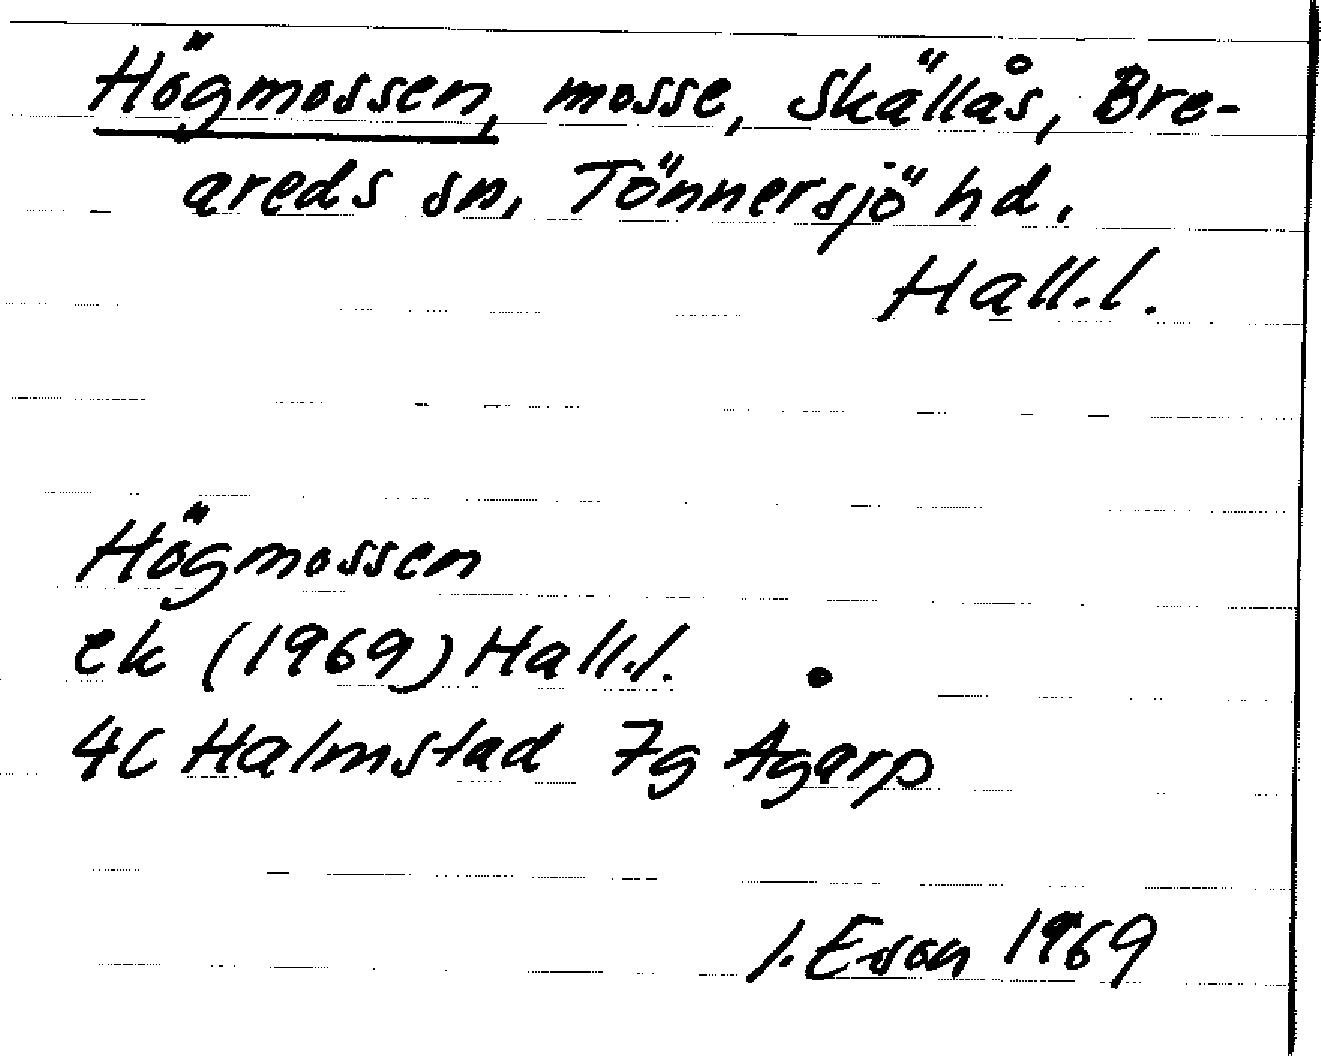 Högmossen, mosse, Skällås, Bre-
areds sn, Tönnersjö hd.
Hall.l.
Högmossen
ek (1969) Hall.l.
4C Halmstad 7g Agarp
I. Eson 1969